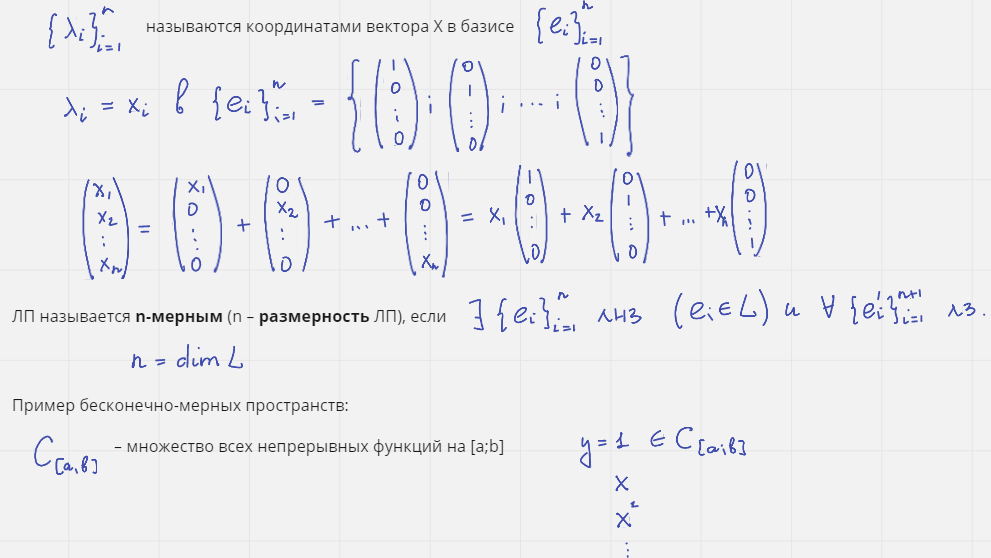 {λᵢ}ⁿᵢ₌₁ называются координатами вектора X в базисе {eᵢ}ⁿᵢ₌₁
λᵢ = xᵢ в {eᵢ}ⁿᵢ₌₁ = {(1 0 ⋮ 0); (0 1 ⋮ 0); ... ; (0 0 ⋮ 1)}
(x₁ x₂ ⋮ xₙ) = (x₁ 0 ⋮ 0) + (0 x₂ ⋮ 0) + ... + (0 0 ⋮ xₙ) = x₁ (1 0 ⋮ 0) + x₂ (0 1 ⋮ 0) + ... + xₙ (0 0 ⋮ 1)
ЛП называется n-мерным (n – размерность ЛП), если ∃ {eᵢ}ⁿᵢ₌₁ лнз (eᵢ ∈ L) и ∀ {eᵢ'}ⁿ⁺¹ᵢ₌₁ лз.
n = dim L
Пример бесконечно-мерных пространств:
C[a;b] – множество всех непрерывных функций на [a;b] y = 1 ∈ C[a;b]
x
x²
⋮